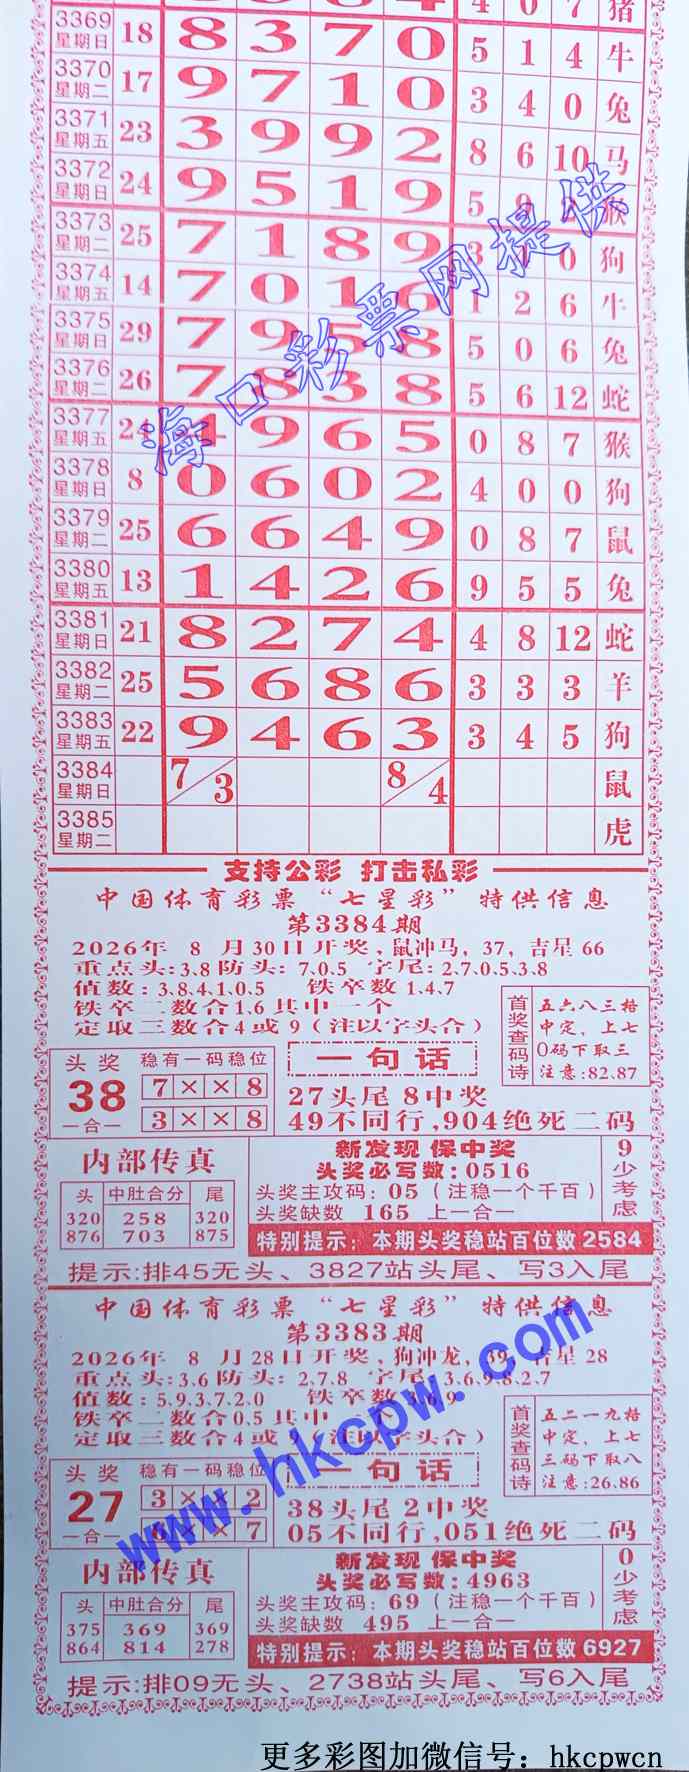 4 0 7 猪
3369 星期日 18 8 3 7 0 5 1 4 牛
3370 星期二 17 9 7 1 0 3 4 0 兔
3371 星期五 23 3 9 9 2 8 6 10 马
3372 星期日 24 9 5 1 9 5 9 猴
3373 星期二 25 7 1 8 9 3 0 狗
3374 星期五 14 7 0 1 6 1 2 6 牛
3375 星期日 29 7 9 5 8 5 0 6 兔
3376 星期二 26 7 8 3 8 5 6 12 蛇
3377 星期五 24 4 9 6 5 0 8 7 猴
3378 星期日 8 0 6 0 2 4 0 0 狗
3379 星期二 25 6 6 4 9 0 8 7 鼠
3380 星期五 13 1 4 2 6 9 5 5 兔
3381 星期日 21 8 2 7 4 4 8 12 蛇
3382 星期二 25 5 6 8 6 3 3 3 羊
3383 星期五 22 9 4 6 3 3 4 5 狗
3384 星期日 7/3 8/4 鼠
3385 星期二 虎
海口彩票网提供
支持公彩 打击私彩
中国体育彩票“七星彩”特供信息
第3384期
2026年 8 月30日开奖、鼠冲马, 37, 吉星 66
重点头:3.8 防头: 7.0.5 字尾: 2.7.0.5.3.8
值数: 3.8.4.1.0.5 铁卒数 1.4.7
铁卒二数合1.6 其中一个
定取三数合 4 或 9 (注以字头合)
首奖查码诗
五六八三梧
中定, 上七
0码下取三
注意:82.87
头奖 稳有一码稳位
38 7 × × 8
一合一 3 × × 8
一句话
27头尾 8 中奖
49不同行,904绝死二码
内部传真
头 中肚合分 尾
320 258 320
876 703 875
新发现 保中奖
头奖必写数:0516
头奖主攻码: 05 (注稳一个千百)
头奖缺数 165 上一合一
9少考虑
特别提示: 本期头奖稳站百位数 2584
提示:排45无头、3827站头尾、写3入尾
中国体育彩票“七星彩”特供信息
第3383期
2026年 8 月28日开奖、狗冲龙, 39, 吉星 28
重点头:3.6 防头: 2.7.8 字尾: 3.6.9.8.2.7
值数: 5.9.3.7.2.0 铁卒数 3.6.9
铁卒二数合0.5 其中一个
定取三数合 4 或 9 (注以字头合)
首奖查码诗
五二一九梧
中定, 上七
三码下取八
注意:26.86
头奖 稳有一码稳位
27 3 × × 2
一合一 6 × × 7
一句话
38头尾 2 中奖
05不同行,051绝死二码
内部传真
头 中肚合分 尾
375 369 369
864 814 278
新发现 保中奖
头奖必写数:4963
头奖主攻码: 69 (注稳一个千百)
头奖缺数 495 上一合一
0少考虑
特别提示: 本期头奖稳站百位数 6927
提示:排09无头、2738站头尾、写6入尾
www.hkcpw.com
更多彩图加微信号: hkcpwcn